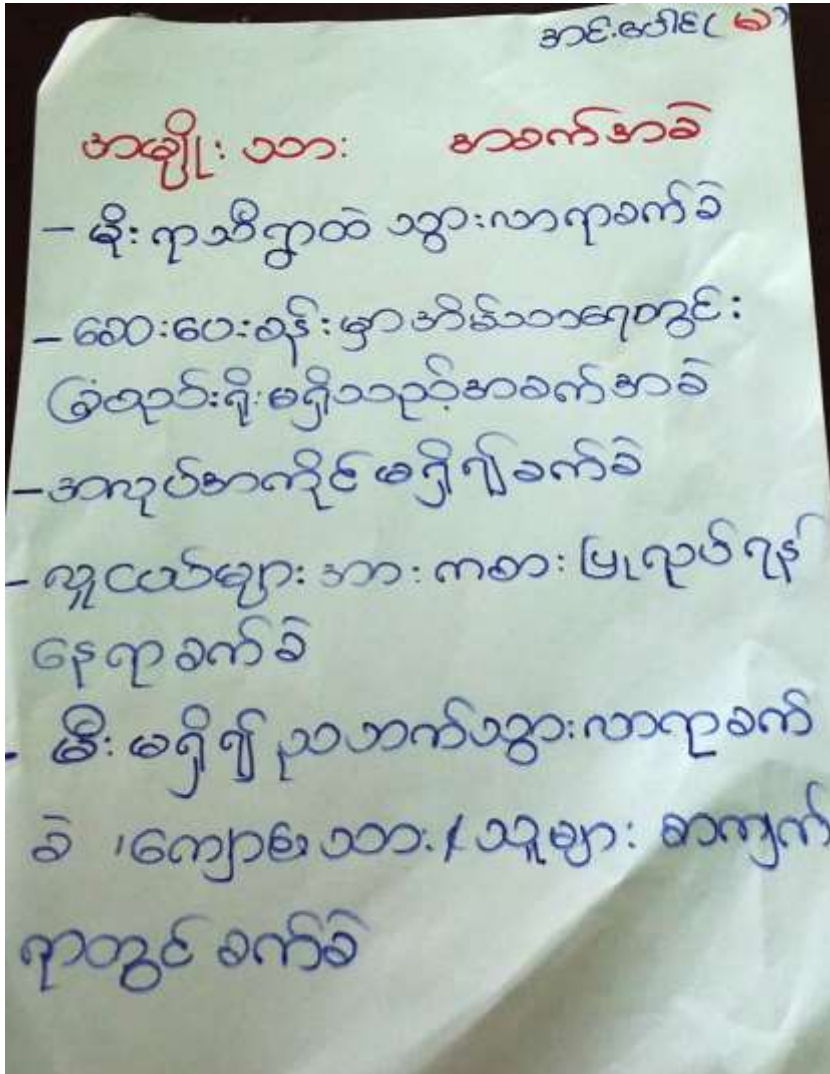 အင်းပေါင် (မ)
အမျိုးသား အခက်အခဲ
- မိုးရာသီရွာထဲ သွားလာရာခက်ခဲ
- ဆေးပေးခန်းမှာအိမ်သာရေတွင်း
ခြံစည်းရိုးမရှိသည့်အခက်အခဲ
- အလုပ်အကိုင်မရှိ၍ခက်ခဲ
- လူငယ်များအားကစားပြုလုပ်ရန်
နေရာခက်ခဲ
- မီးမရှိ၍ညဘက်သွားလာရာခက်
ခဲ ၊ကျောင်းသား/သူများ စာကျက်
ရာတွင် ခက်ခဲ